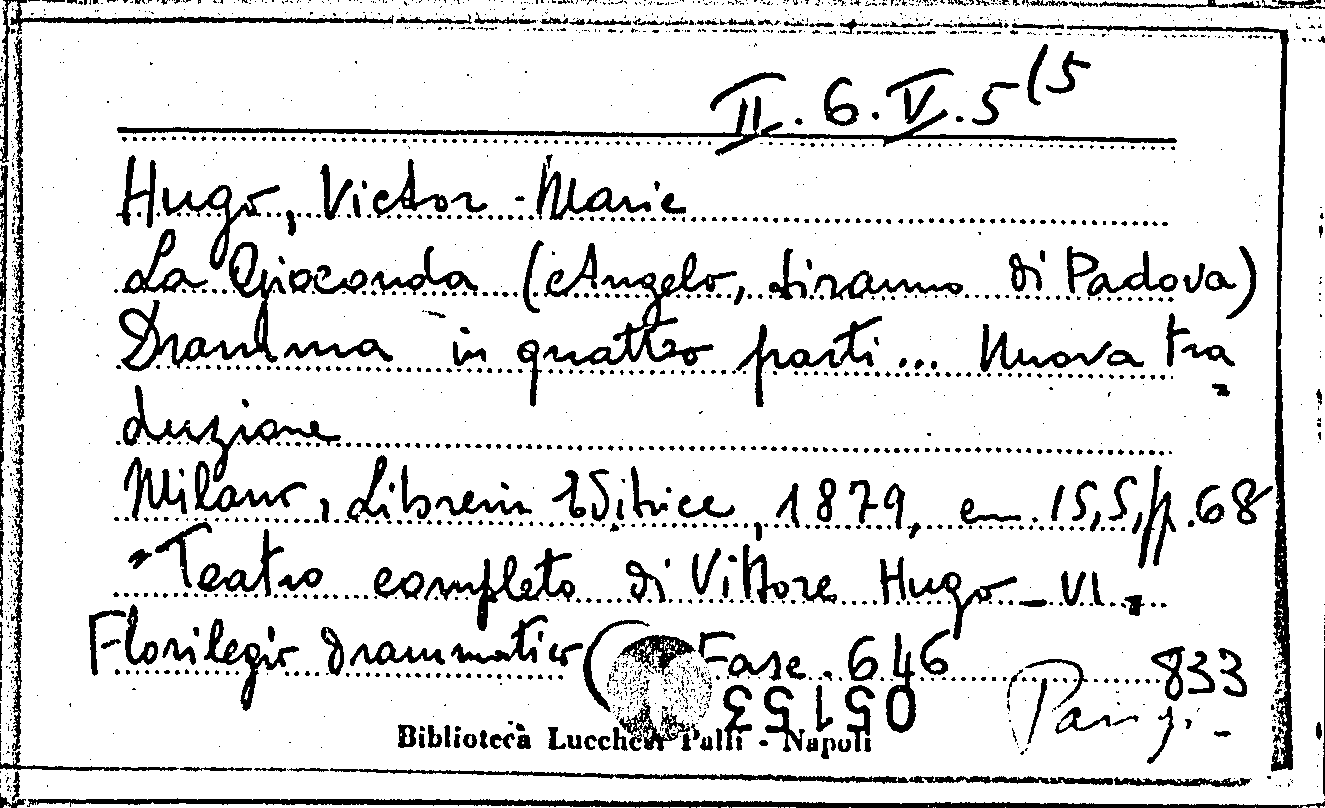 II. 6. V. 5 (5
Hugo, Victor-Marie
La Gioconda (Angelo, tiranno di Padova)
Dramma in quattro parti... Nuova tra=
duzione
Milano, Libreria Editrice, 1879, cm. 15,5, pp. 68
"Teatro completo di Vittore Hugo - VI"
Florilegio drammatico ( Fasc. 646
833
051553
Biblioteca Lucchesi Palli - Napoli